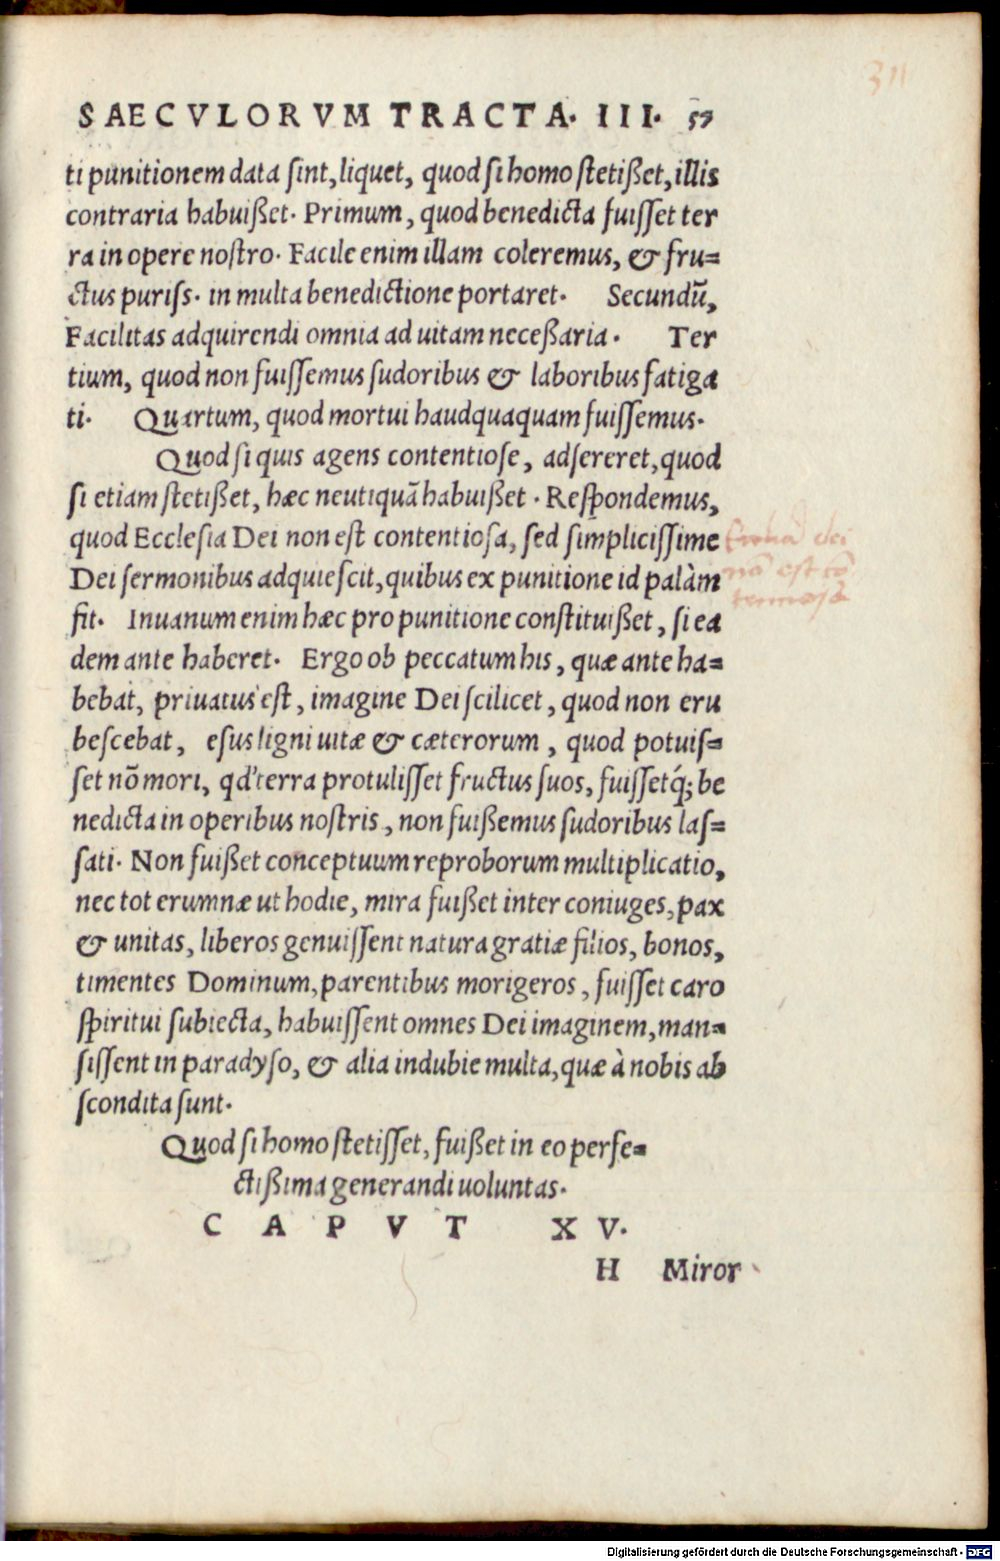 311
SAECVLORVM TRACTA. III. 57
ti punitionem data sint, liquet, quod si homo stetißet, illis
contraria habuißet. Primum, quod benedicta fuisset ter
ra in opere nostro. Facile enim illam coleremus, & fru=
ctus puriss. in multa benedictione portaret. Secundũ,
Facilitas adquirendi omnia ad uitam neceßaria. Ter
tium, quod non fuissemus sudoribus & laboribus fatiga
ti. Quartum, quod mortui haudquaquam fuissemus.
Quod si quis agens contentiose, adsereret, quod
si etiam stetißet, hæc neutiquã habuißet. Respondemus,
quod Ecclesia Dei non est contentiosa, sed simplicissime
Dei sermonibus adquiescit, quibus ex punitione id palàm
fit. Inuanum enim hæc pro punitione constituißet, si ea
dem ante haberet. Ergo ob peccatum his, quæ ante ha=
bebat, priuatus est, imagine Dei scilicet, quod non eru
bescebat, esus ligni uitæ & cæterorum, quod potuis=
set nõ mori, qd' terra protulisset fructus suos, fuissetq́; be
nedicta in operibus nostris, non fuißemus sudoribus las=
sati. Non fuißet conceptuum reproborum multiplicatio,
nec tot erumnæ ut hodie, mira fuißet inter coniuges, pax
& unitas, liberos genuissent natura gratiæ filios, bonos,
timentes Dominum, parentibus morigeros, fuisset caro
spiritui subiecta, habuissent omnes Dei imaginem, man=
sissent in paradyso, & alia indubie multa, quæ à nobis ab
scondita sunt.
Quod si homo stetisset, fuißet in eo perfe=
ctißima generandi uoluntas.
CAPVT XV.
H Miror
dei
nō est cō
Digitalisierung gefördert durch die Deutsche Forschungsgemeinschaft - DFG